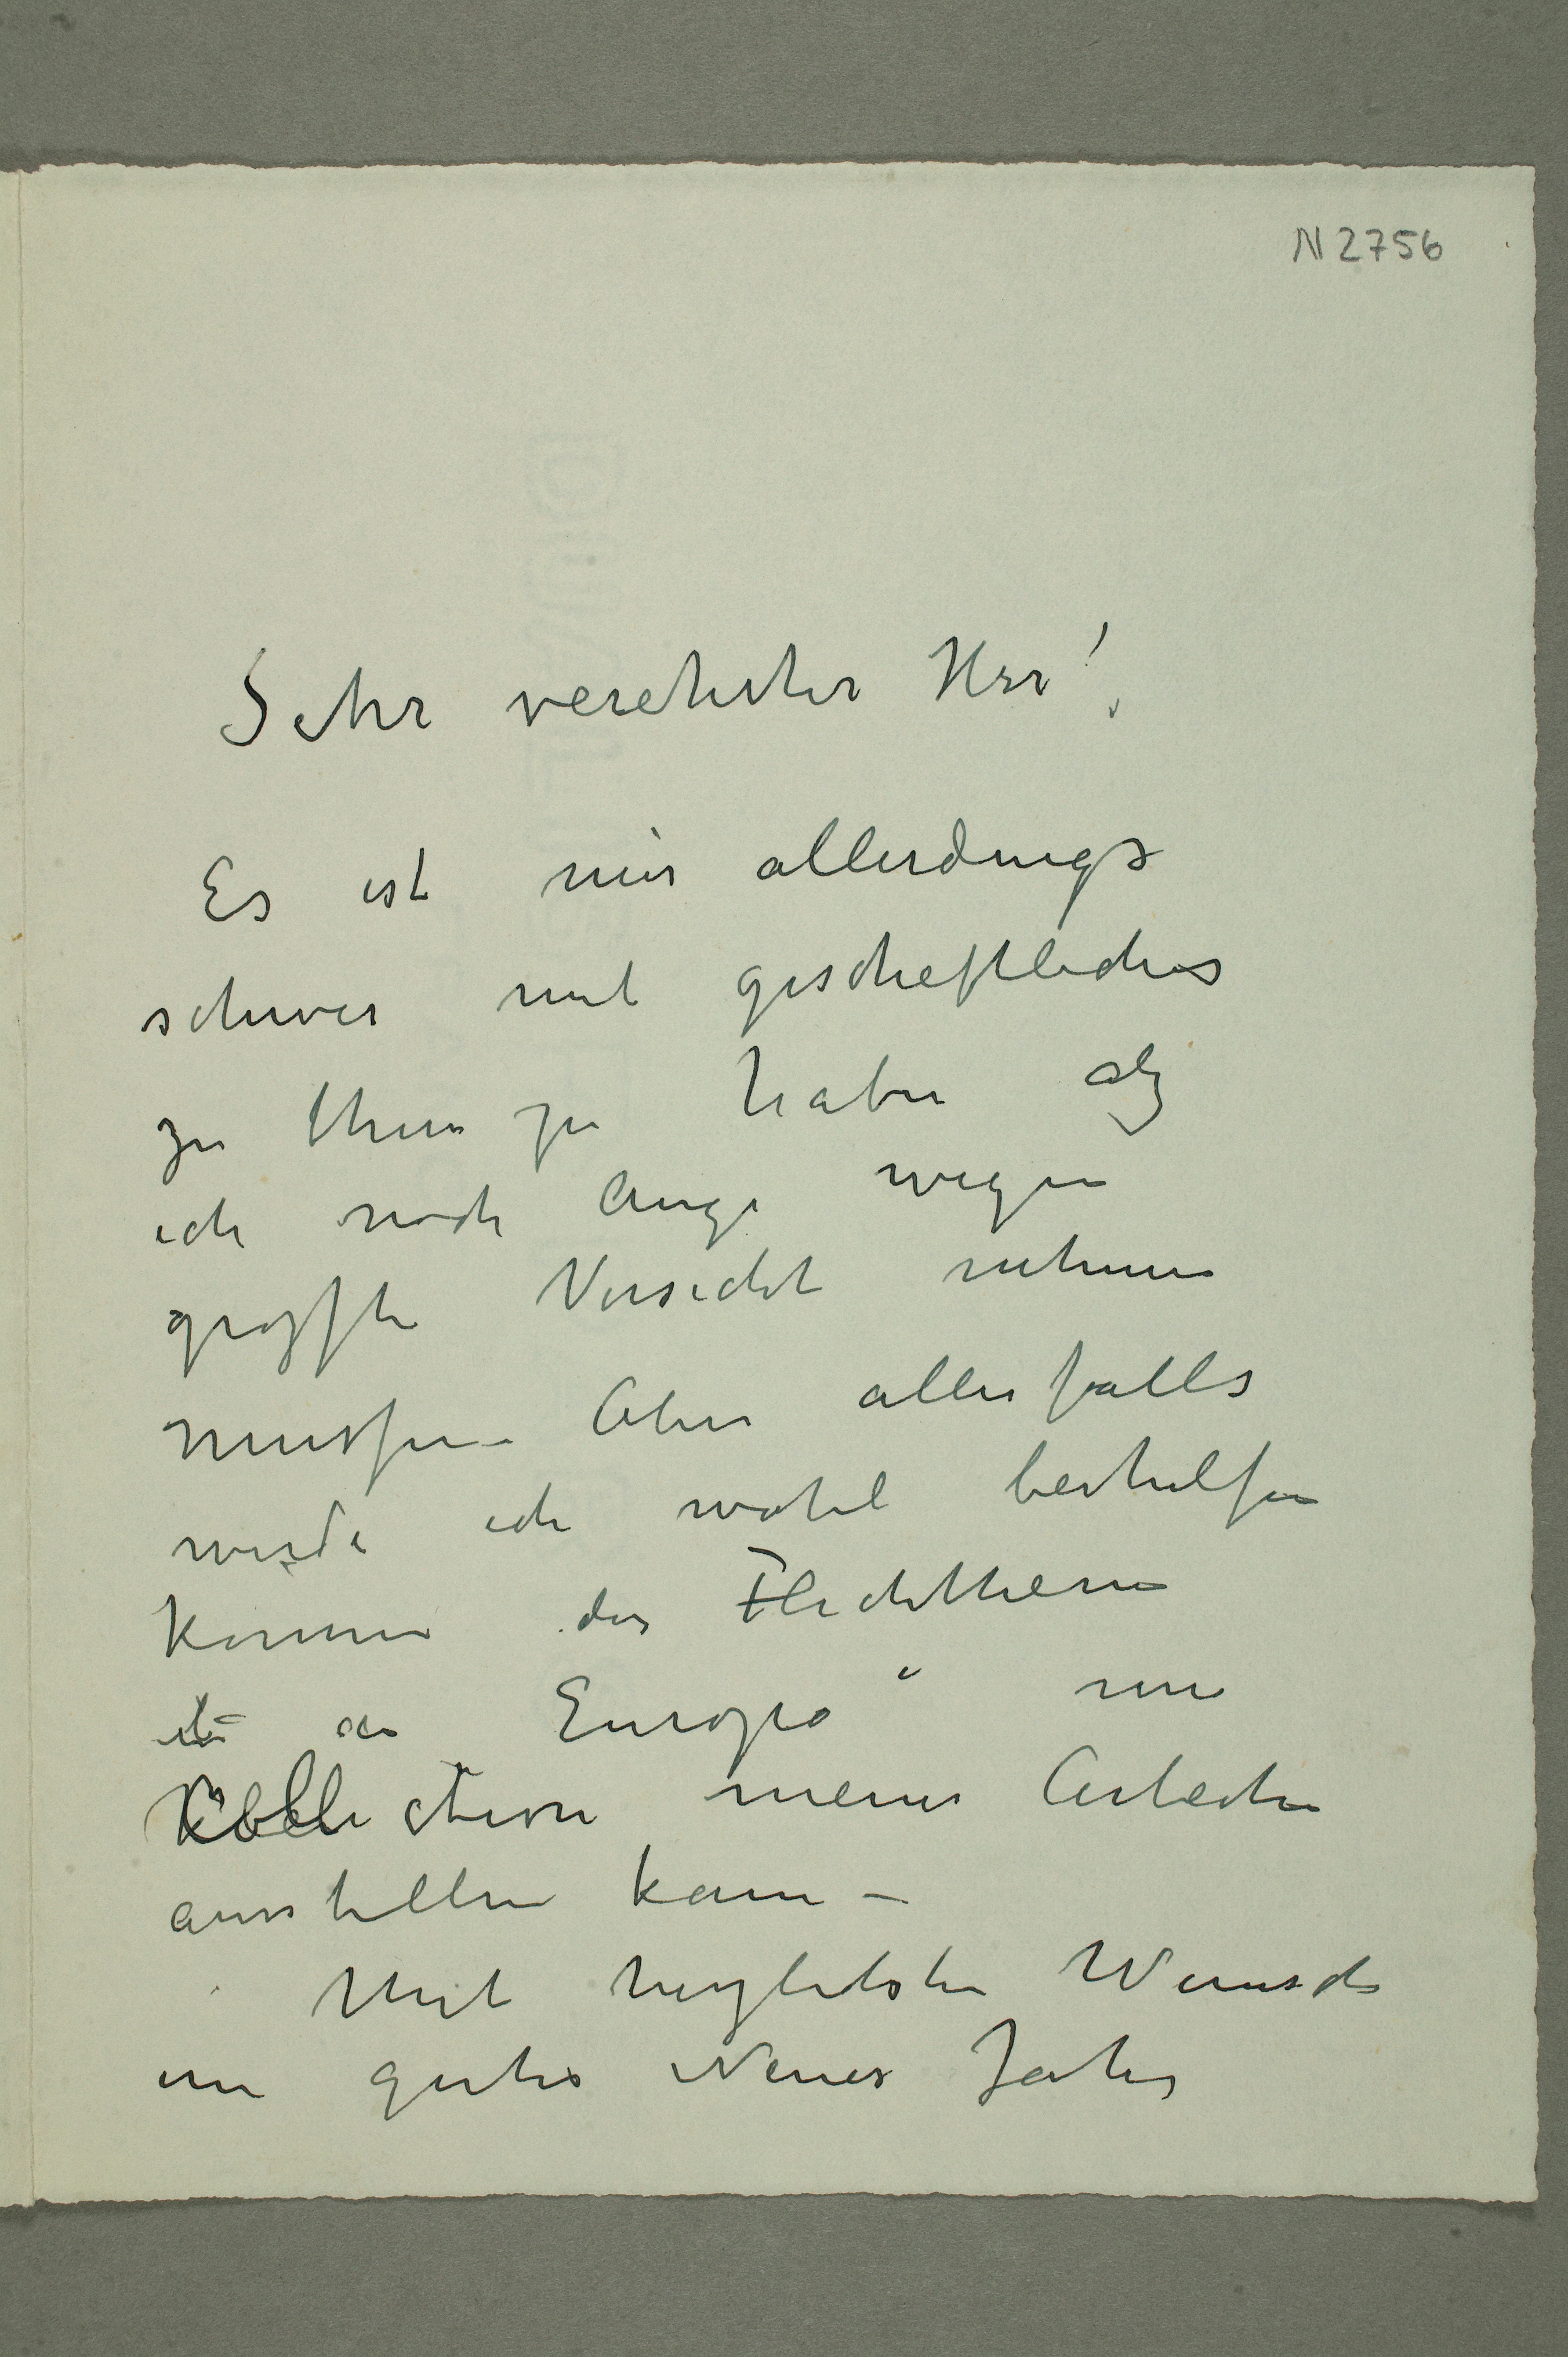 N 2756
Sehr verehrter Herr!
Es ist mir allerdings
schwer mit gescheftliches
zu thun zu haben als
ich noch Auge wegen
grøsste Vorsicht nehmen
mussen. Aber allerfalls
werde ich wohl beihelfen
konnen das Flechtheim
in Europa" eine
Kollection meiner Arbeiten
ausstellen kann –
Mit herzlichsten Wunsch
ein gutes Neues Jahr